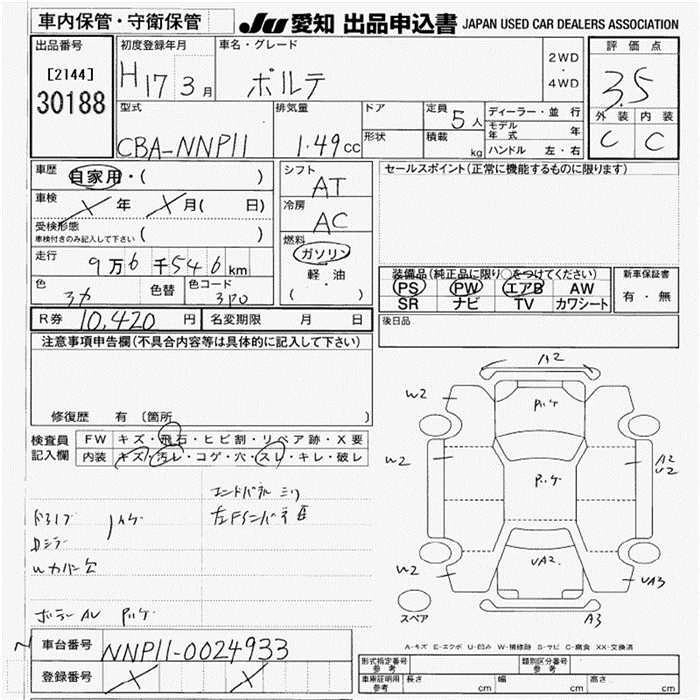 車内保管・守衛保管
JU 愛知 出品申込書 JAPAN USED CAR DEALERS ASSOCIATION
出品番号
[2144]
30188
初度登録年月
H17 3月
車名・グレード
ポルテ
2WD
・
4WD
評価点
3.5
外装 内装
C C
型式
CBA-NNP11
排気量
1.49cc
ドア
形状
定員 5人
積載 kg
ディーラー・並行
モデル年式 年
ハンドル 左・右
車歴 自家用・( )
車検 X年 X月( 日)
受検形態
車検付きのみ記入して下さい ( )
走行 9万6千546km
色 色替 色コード 3P0
シフト
AT
冷房
AC
燃料
ガソリン
軽・油
( )
セールスポイント(正常に機能するものに限ります)
装備品(純正品に限り○をつけてください)
PS PW エアB AW
SR ナビ TV カワシート
新車保証書
有・無
R券 10,420円 名変期限 月 日
後日品
注意事項申告欄(不具合内容等は具体的に記入して下さい)
修復歴 有 〔箇所 〕
検査員記入欄
FW キズ・飛石・ヒビ割・リペア跡・X要
内装 キズ・汚レ・コゲ・穴・スレ・キレ・破レ
A2
W2
W2
W2
A2
U2
UA2
UA3
A3
スペア
A-キズ E-エクボ U-凹み W-補修跡 S-サビ C-腐食 XX-交換済
車台番号 NNP11-0024933
登録番号 X X
形式指定番号 参考
類別区分番号 参考
車庫証明用 参考 長さ cm 幅 cm 高さ cm